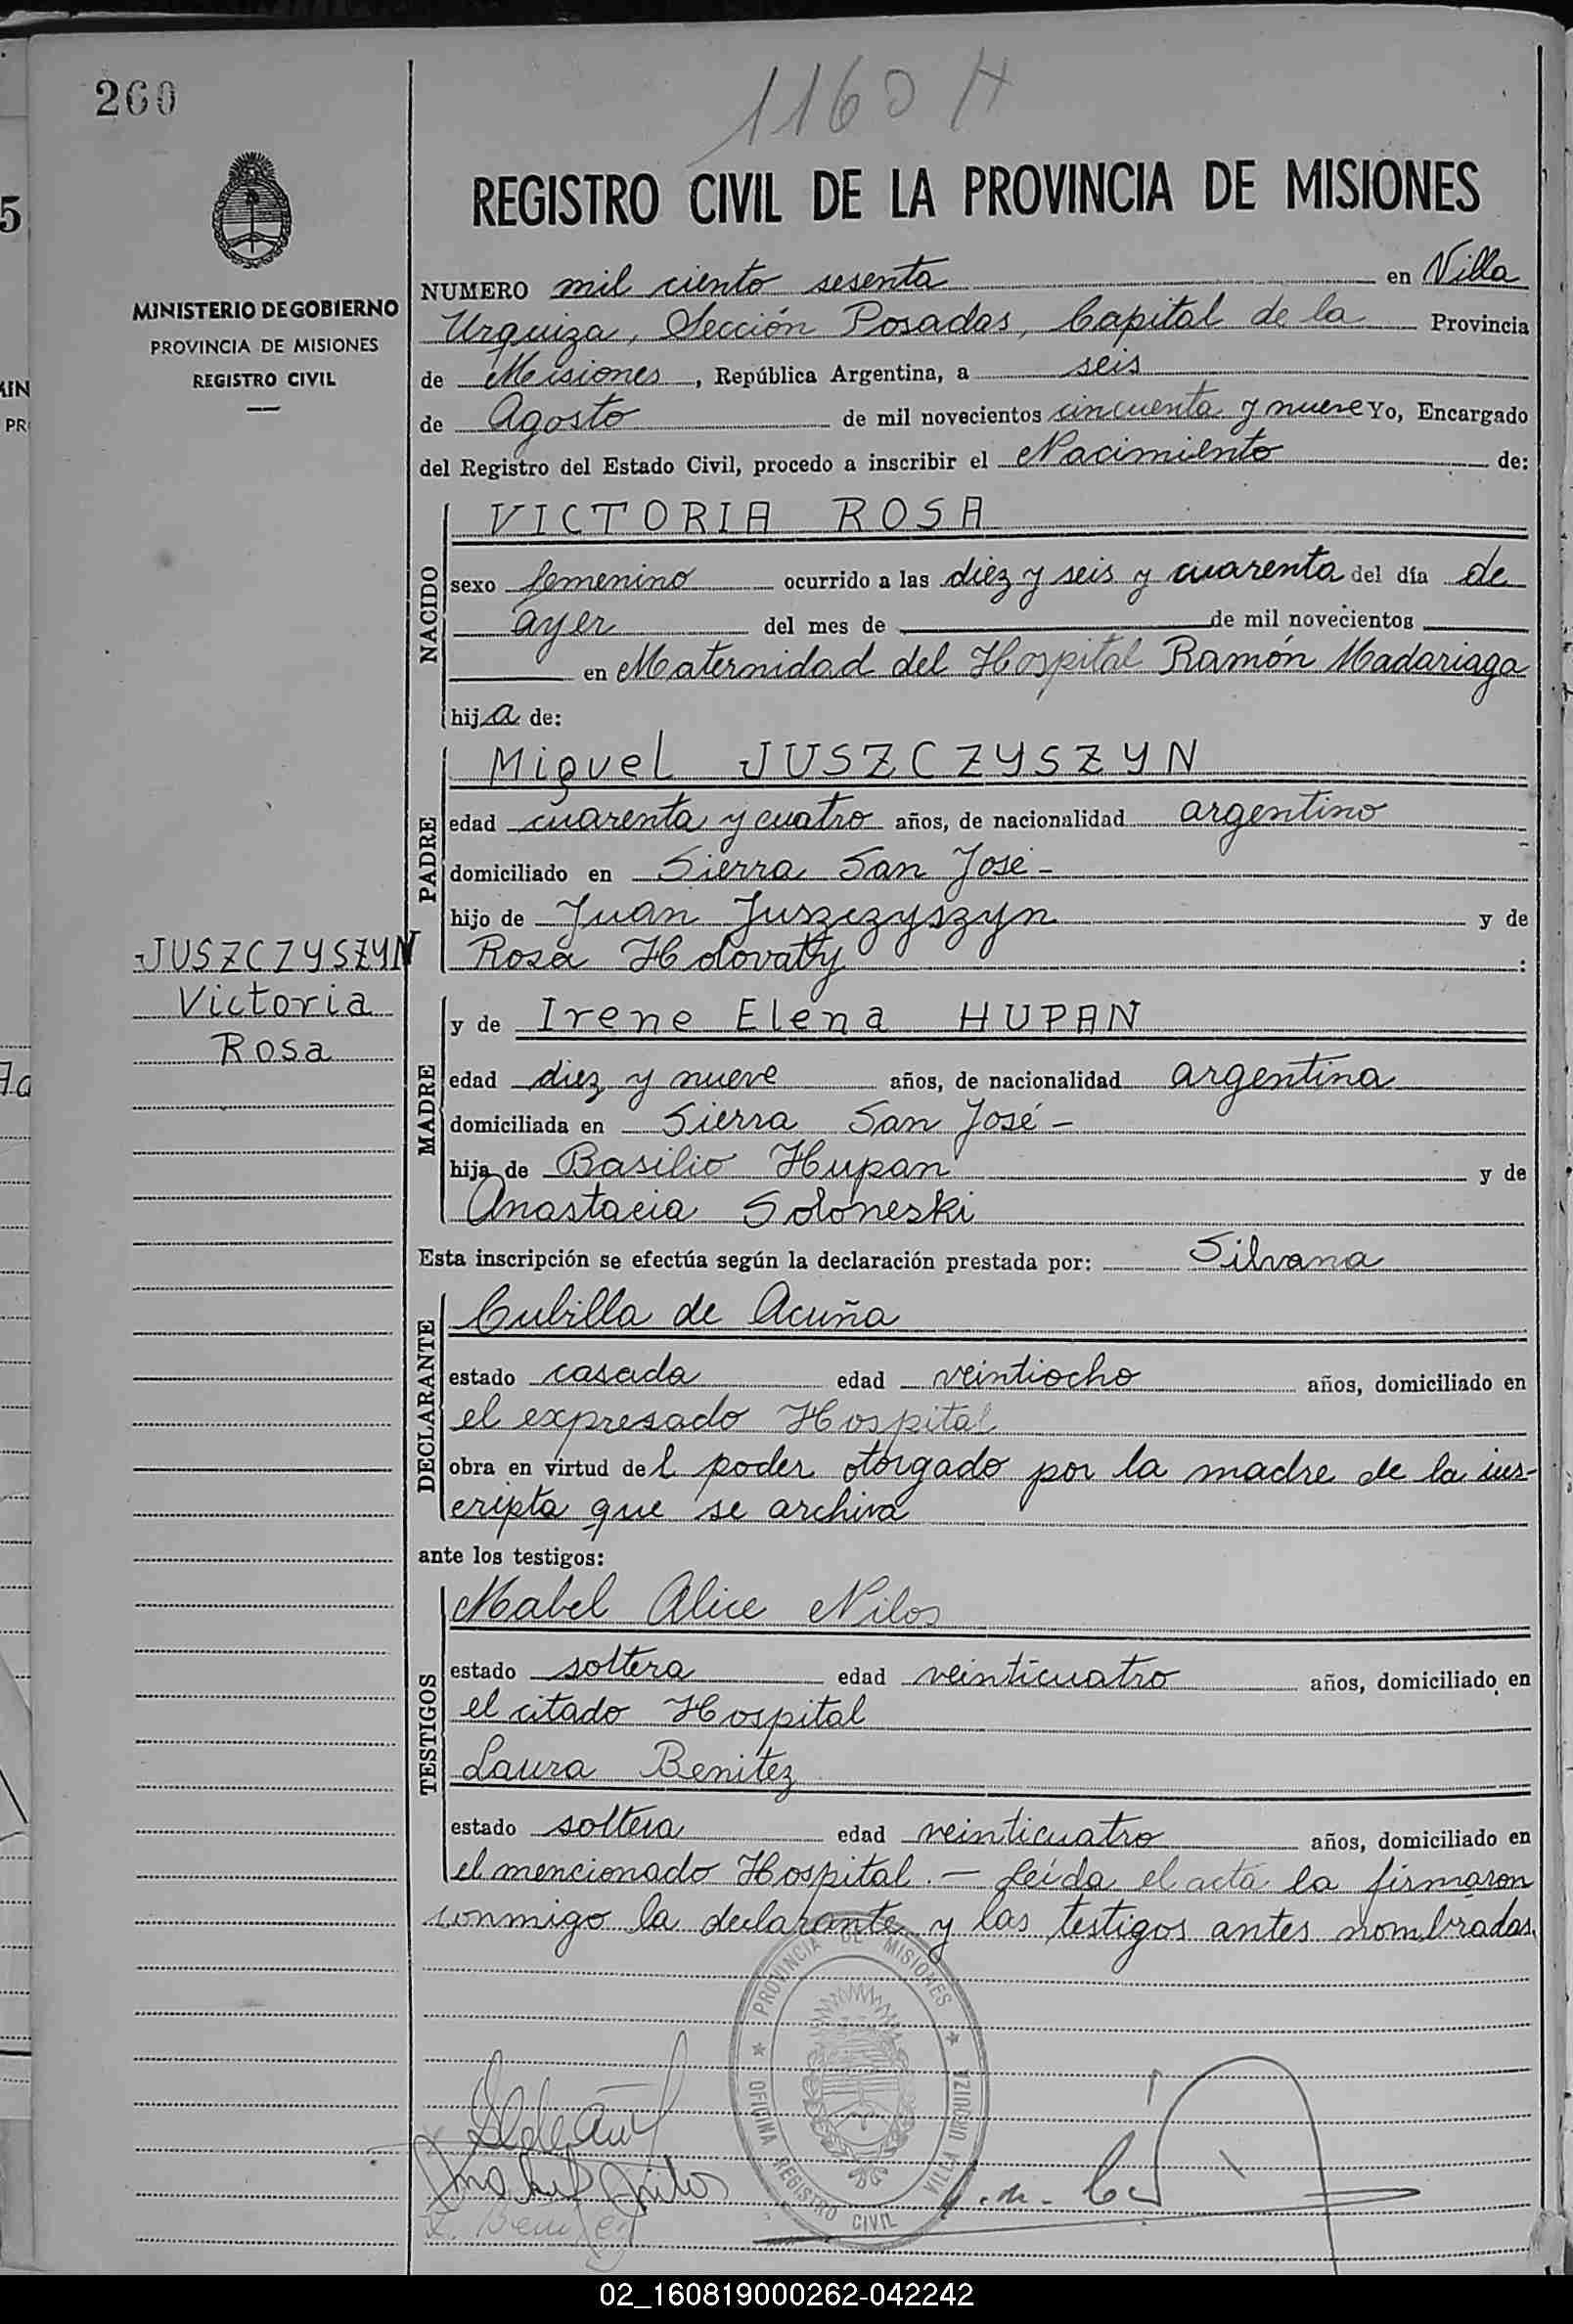 260
1160 H
REGISTRO CIVIL DE LA PROVINCIA DE MISIONES
MINISTERIO DE GOBIERNO
PROVINCIA DE MISIONES
REGISTRO CIVIL
NUMERO mil ciento sesenta en Villa
Urquiza, Sección Posadas, Capital de la Provincia
de Misiones, República Argentina, a seis
de Agosto de mil novecientos cincuenta y nueve Yo, Encargado
del Registro del Estado Civil, procedo a inscribir el Nacimiento de:
NACIDO
VICTORIA ROSA
sexo femenino ocurrido a las diez y seis y cuarenta del día de
ayer del mes de de mil novecientos
en Maternidad del Hospital Ramón Madariaga
hija de:
PADRE
Miguel JUSZCZYSZYN
edad cuarenta y cuatro años, de nacionalidad argentino
domiciliado en Sierra San José -
hijo de Juan Juszczyszyn y de
Rosa Holovaty
JUSZCZYSZYN
Victoria
Rosa
MADRE
y de Irene Elena HUPAN
edad diez y nueve años, de nacionalidad argentina
domiciliada en Sierra San José -
hija de Basilio Hupan y de
Anastacia Soloneski
Esta inscripción se efectúa según la declaración prestada por: Silvana
DECLARANTE
Cubilla de Acuña
estado casada edad veintiocho años, domiciliado en
el expresado Hospital
obra en virtud del poder otorgado por la madre de la ins-
cripta que se archiva
ante los testigos:
TESTIGOS
Mabel Alice Nilos
estado soltera edad veinticuatro años, domiciliado en
el citado Hospital
Laura Benitez
estado soltera edad veinticuatro años, domiciliado en
el mencionado Hospital. - Leída el acta la firmaron
conmigo la declarante y las testigos antes nombradas.
PROVINCIA DE MISIONES
OFICINA REGISTRO CIVIL VILLA URQUIZA
02_160819000262-042242